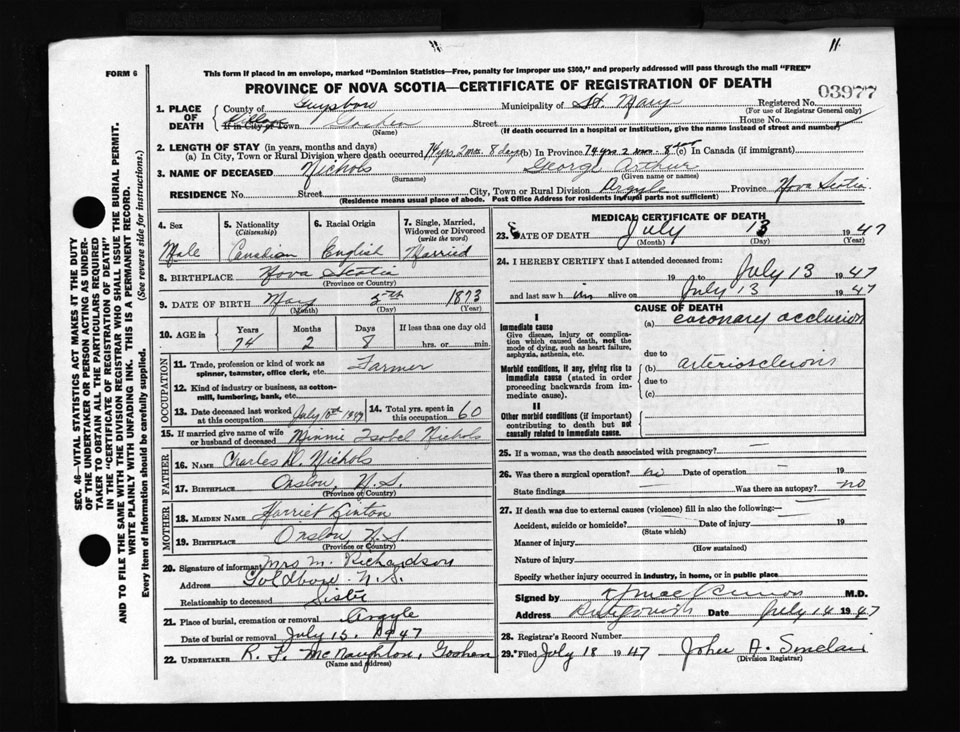 FORM 6
This form if placed in an envelope, marked "Dominion Statistics—Free, penalty for improper use $300," and properly addressed will pass through the mail "FREE"
PROVINCE OF NOVA SCOTIA—CERTIFICATE OF REGISTRATION OF DEATH
03977
1. PLACE OF DEATH
County of Guysboro Municipality of St. Mary Registered No.
(For use of Registrar General only)
Village
If in City or Town Goshen Street House No.
(Name) (If death occurred in a hospital or institution, give the name instead of street and number)
2. LENGTH OF STAY (in years, months and days)
(a) In City, Town or Rural Division where death occurred 74 yrs 2 mos. 8 days (b) In Province 74 yrs 2 mos. 8 (c) In Canada (if immigrant)
3. NAME OF DECEASED Nichols George Arthur
(Surname) (Given name or names)
RESIDENCE No. Street City, Town or Rural Division Argyle Province Nova Scotia
(Residence means usual place of abode. Post Office Address for residents in rural parts not sufficient)
4. Sex
Male
5. Nationality
(Citizenship)
Canadian
6. Racial Origin
English
7. Single, Married, Widowed or Divorced
(write the word)
Married
8. BIRTHPLACE Nova Scotia
(Province or Country)
9. DATE OF BIRTH May 5th 1873
(Month) (Day) (Year)
10. AGE in Years Months Days If less than one day old
74 2 8 hrs. or min.
OCCUPATION
11. Trade, profession or kind of work as Farmer
spinner, teamster, office clerk, etc.
12. Kind of industry or business, as cotton-
mill, lumbering, bank, etc.
13. Date deceased last worked at this occupation July 10th
14. Total yrs. spent in this occupation 60
15. If married give name of wife or husband of deceased Minnie Isobel Nichols
FATHER
16. NAME Charles D. Nichols
17. BIRTHPLACE Onslow, N.S.
(Province or Country)
MOTHER
18. MAIDEN NAME Harriet
19. BIRTHPLACE Onslow N.S.
(Province or Country)
20. Signature of informant Mrs M. Richardson
Address Goldboro N.S.
Relationship to deceased Sister
21. Place of burial, cremation or removal Argyle
Date of burial or removal July 15, 1947
22. UNDERTAKER R. F. McNaughton, Goshen
(Name and Address)
MEDICAL CERTIFICATE OF DEATH
23. DATE OF DEATH July 13 1947
(Month) (Day) (Year)
24. I HEREBY CERTIFY that I attended deceased from:
19 to July 13 1947
and last saw him alive on July 13 1947
CAUSE OF DEATH
I
Immediate cause
Give disease, injury or complication which caused death, not the mode of dying, such as heart failure, asphyxia, asthenia, etc.
(a) coronary occlusion
due to
Morbid conditions, if any, giving rise to immediate cause (stated in order proceeding backwards from immediate cause).
(b) arteriosclerosis
due to
(c)
II
Other morbid conditions (if important) contributing to death but not causally related to immediate cause.
25. If a woman, was the death associated with pregnancy? —
26. Was there a surgical operation? no Date of operation — 19
State findings Was there an autopsy? no
27. If death was due to external causes (violence) fill in also the following:—
Accident, suicide or homicide? Date of injury 19
(State which)
Manner of injury
(How sustained)
Nature of injury
Specify whether injury occurred in industry, in home, or in public place
Signed by M.D.
Address Antigonish Date July 14 1947
28. Registrar's Record Number
29. Filed July 18 1947 John A. Sinclair
(Division Registrar)
SEC. 46—VITAL STATISTICS ACT MAKES IT THE DUTY
OF THE UNDERTAKER OR PERSON ACTING AS UNDER-
TAKER TO OBTAIN ALL THE PARTICULARS REQUIRED
IN THE "CERTIFICATE OF REGISTRATION OF DEATH"
AND TO FILE THE SAME WITH THE DIVISION REGISTRAR WHO SHALL ISSUE THE BURIAL PERMIT.
WRITE PLAINLY WITH UNFADING INK. THIS IS A PERMANENT RECORD.
Every item of Information should be carefully supplied. (See reverse side for instructions.)